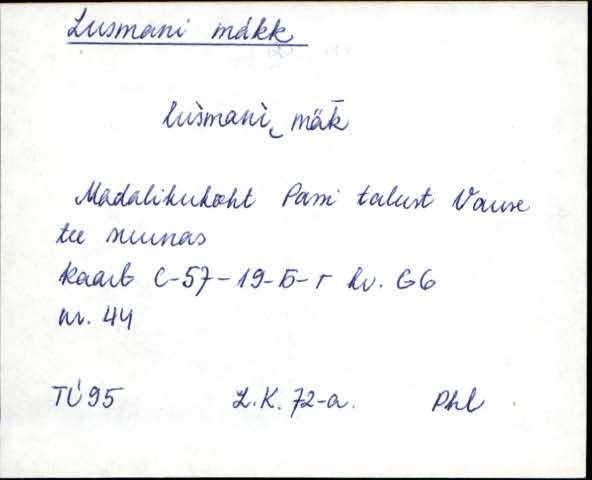 Lusmani mäkk
lùsmanì‿ mä̆k
Madalikukoht Passi talust Vause
tee suunas
kaart C-57-19-Б-г kv. G6
nr. 44
TÜ 95 L.K. 72-a. Phl